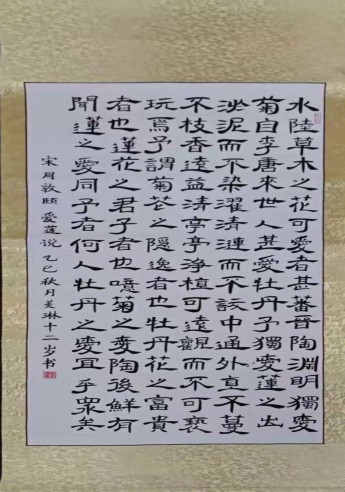 水陸草木之花可愛者甚蕃晉陶淵明獨愛
菊自李唐來世人甚愛牡丹予獨愛蓮之出
淤泥而不染濯清漣而不妖中通外直不蔓
不枝香遠益清亭亭淨植可遠觀而不可褻
玩焉予謂菊花之隱逸者也牡丹花之富貴
者也蓮花之君子者也噫菊之愛陶後鮮有
聞蓮之愛同予者何人牡丹之愛宜乎眾矣
宋周敦頤愛蓮说乙巳秋月琳十二岁书